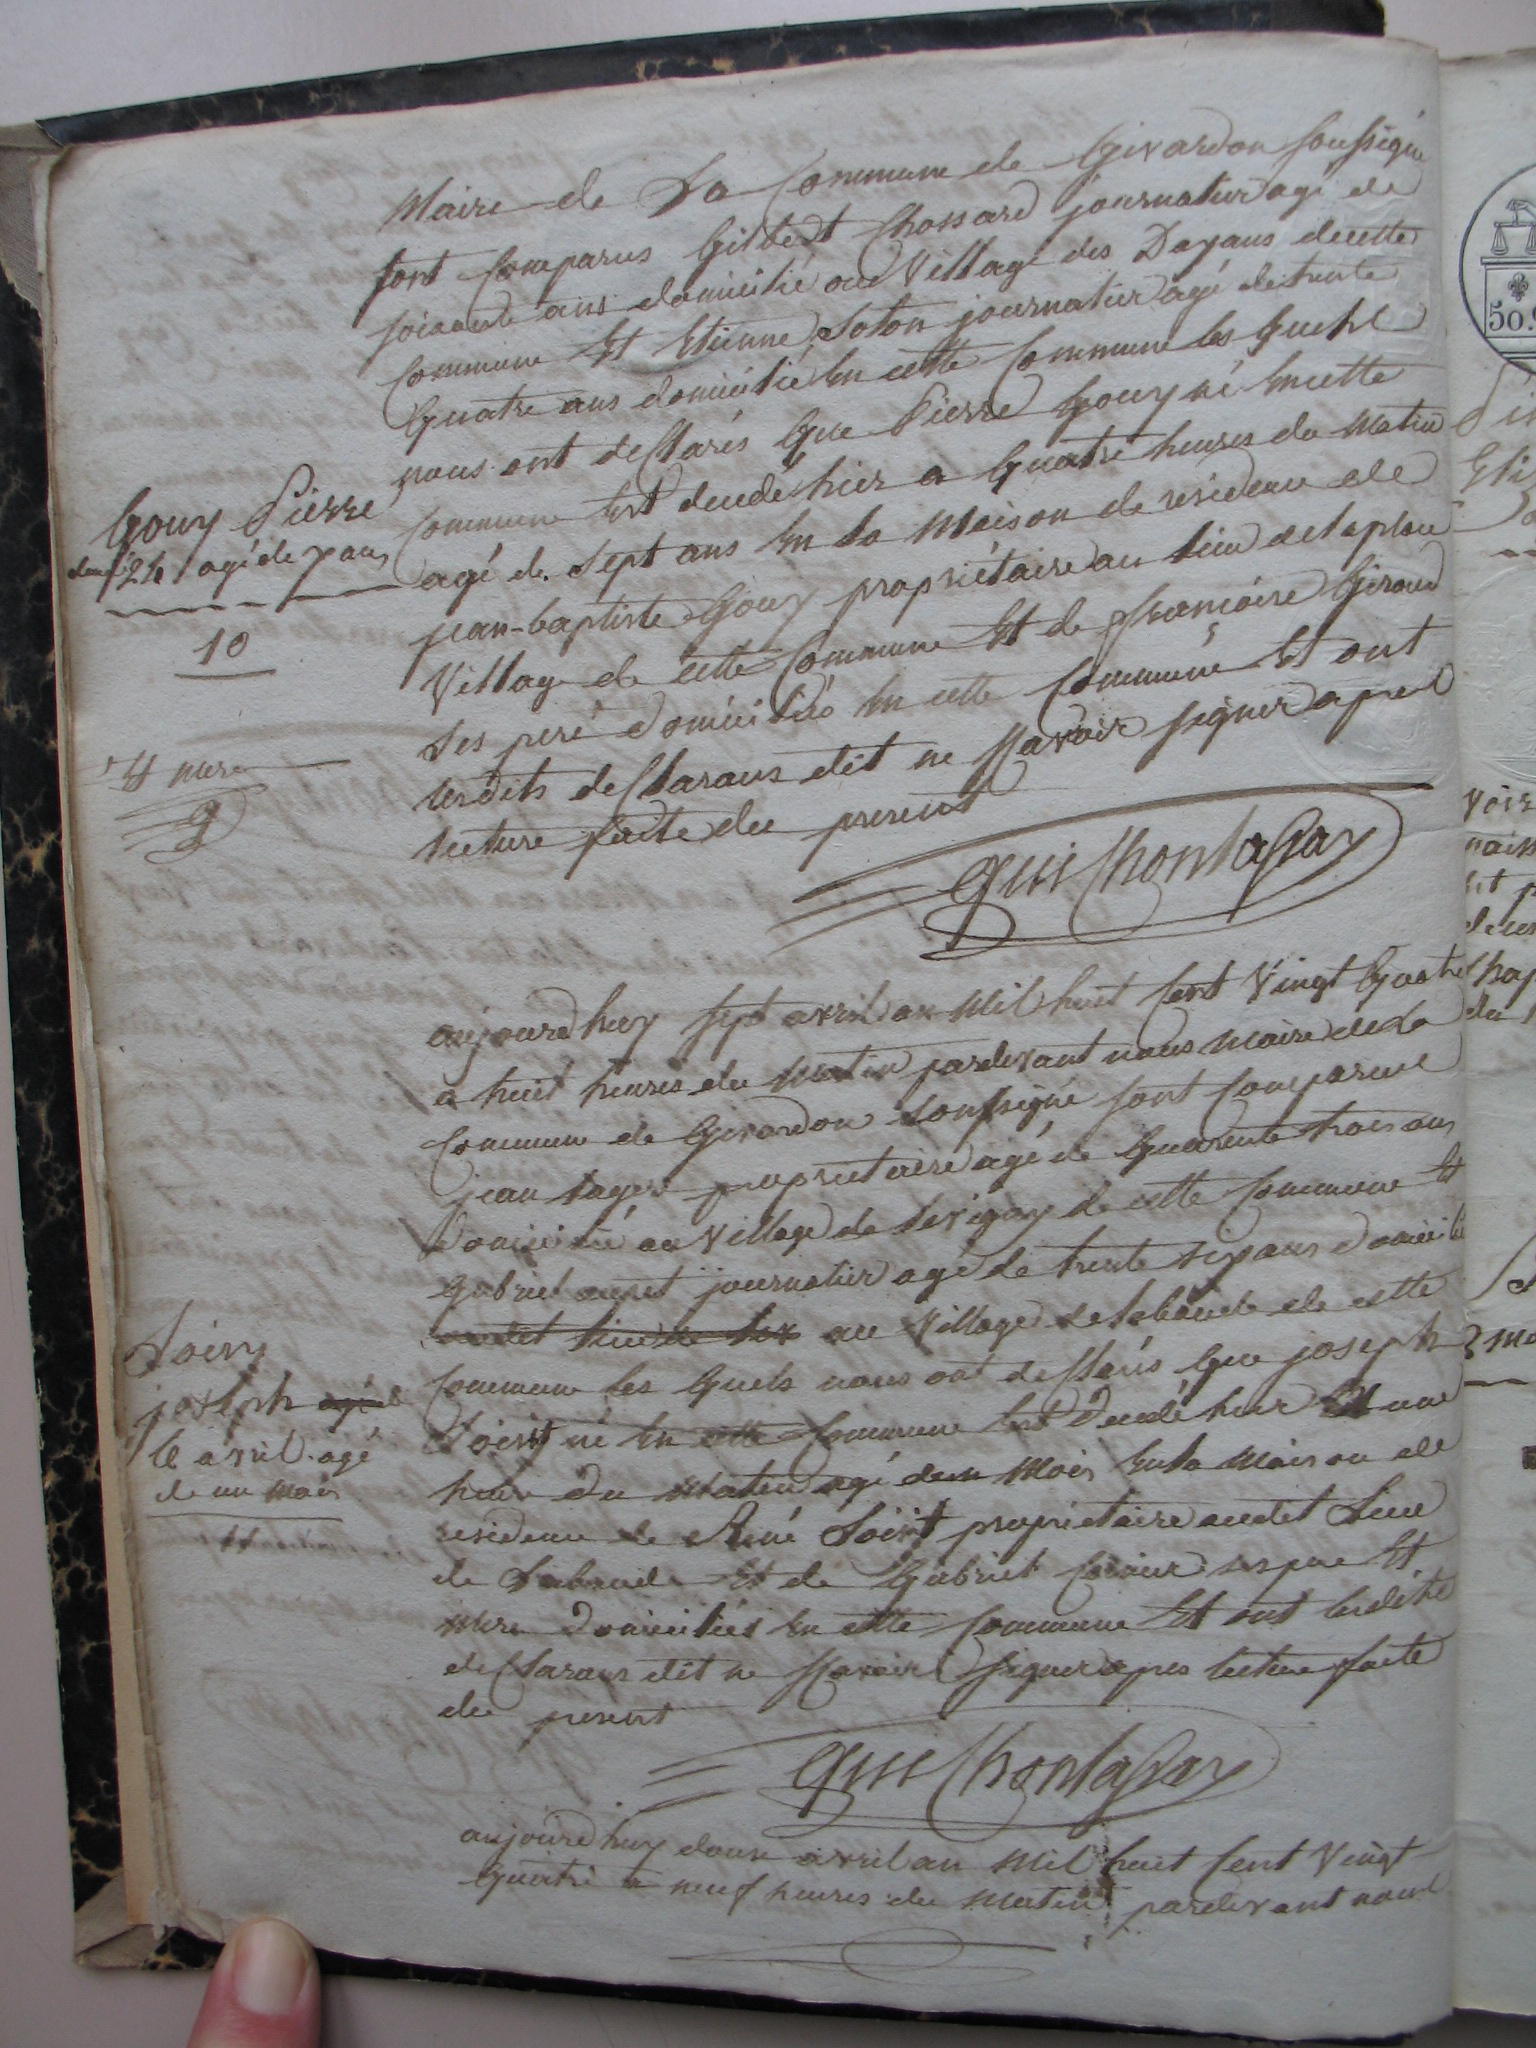 Maire de La Commune de Givardon soussigné
sont Comparus Gilbert Chossard journalier agé de
soixante ans domicilié au Village des Dagaus de cette
Commune Et Etienne Loton journalier agé de trente
Quatre ans domicilié En cette Commune les Quels
nous ont desclarés Que Pierre Gouy né En cette
Commune Est deudé hier a Quatre heures du Matin
agé de sept ans En La Maison de residence de
jean-baptiste Gouy propriétaire au Lieu de laplau
Village de cette Commune Et de Francoise Giraud
Ses peré domiciliés En cette Commune Et ont
Lesdits desclarans dit ne sçavoir signer apres
lecture faite du present
Gouy Pierre
agé de 7 ans
10
Et mere
Gui Chontagay
aujourdhuy sept avril an Mil huit Cent Vingt Quatre
a huit heures du Matin pardevant nous Maire de La
Commune de Givardon soussigné sont Comparus
jean Lager proprietaire agé de Quarente trois ans
domicilié au Village de Levigny de cette Commune Et
Gabriel auput journalier agé de trente six ans domicilié
audit lieu de au Village de Labaude de cette
Commune les Quels nous ont desclarés Que joseph
Loirit né En cette Commune Est deudé hier a une
heure du Matin agé dun Mois En La Maison de
residence de René Loirit propriétaire audit Lieu
de Labaude Et de Gabriel Coriau ses pere Et
Mere domiciliés En cette Commune Et ont Lesdits
desclarans dit ne sçavoir signer apres lecture faite
du present
Loiry
joseph agé de
6 avril agé
de un mois
11
Gui Chontagay
aujourdhuy douze avril an Mil huit Cent Vingt
Quatre a neuf heures du Matin pardevant nous
50.